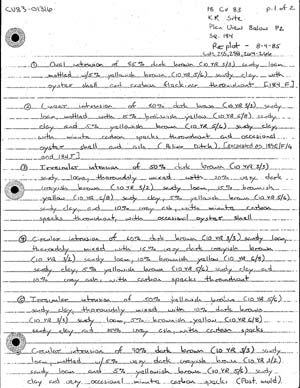 CV83-01316
18 Cv 83 p. 1 of 2
K.R Site
Plan View Below PZ
Sq. 184
Replot - 8-4-85
① Oval intrusion of 85% dark brown (10 YR 3/3) sandy loam,
mottled w/5% yellowish brown (10 YR 5/6) sandy clay, with
oyster shell and carbon flecking throughout [184 F]
② Linear intrusion of 80% dark brown (10 YR 3/3) sandy
loam, mottled with 15% brownish yellow (10 YR 6/8) sandy
clay and 5% yellowish brown (10 YR 5/6) sandy clay
with minute carbon specks throughout and occasional
oyster shell and ash (Ditch). [excavated as 184E/F/G
and 184J]
③ Irregular intrusion of 50% dark brown (10 YR 3/3)
sandy loam, thoroughly mixed with 20% very dark
grayish brown (10 YR 3/2) sandy loam, 15% brownish
yellow (10 YR 6/8) sandy clay, 5% yellowish brown (10 YR 5/6)
sandy clay, and 10% gray ash, with minute carbon
specks throughout, with occasional oyster shell
④ Circular intrusion of 60% dark brown (10 YR 3/3) sandy loam,
thoroughly mixed with 15% very dark grayish brown
(10 YR 3/2) sandy loam, 10% brownish yellow (10 YR 6/8)
sandy clay, 5% yellowish brown (10 YR 5/6) sandy clay and
10% gray ash, with carbon specks throughout
⑤ Irregular intrusion of 50% yellowish brown (10 YR 5/6)
sandy clay, thoroughly mixed with 10% dark brown
(10 YR 3/3) sandy loam, 5% brownish yellow (10 YR 6/8)
sandy clay and 10% gray ash, with carbon specks
⑥ Circular intrusion of 90% dark brown (10 YR 3/3) sandy
loam, mottled w/5% very dark grayish brown (10 YR 3/2)
sandy loam and 5% yellowish brown (10 YR 5/6) sandy
clay and very occasional minute carbon specks (Post mold)